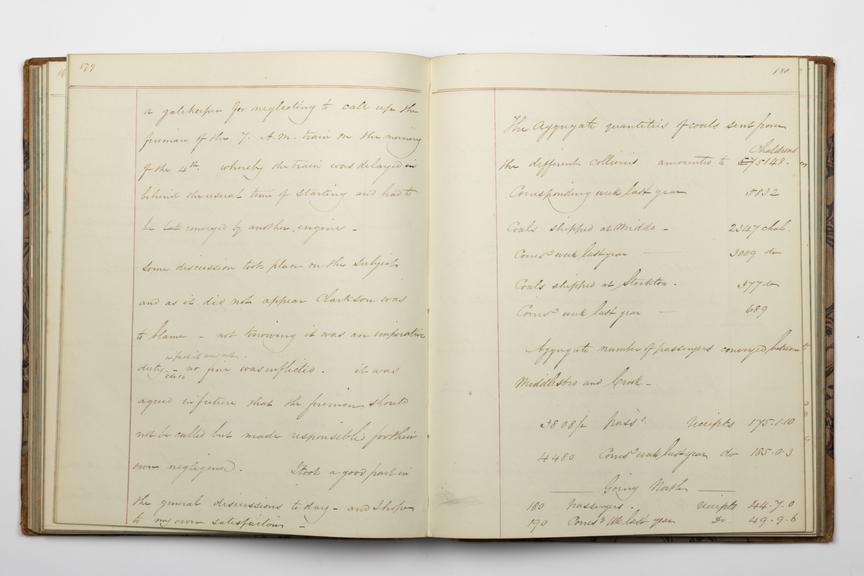 179
a gatekeeper for neglecting to call up the
fireman of the 7. A.M. train on the morning
of the 4th. whereby the train was delayed in
behind the usual time of starting and had to
be conveyed by another engine -
Some discussion took place on the subject
and as it did not appear Clarkson was
to blame - not knowing it was an imperative
duty - no fine was inflicted. it was
agreed in future that the firemen should
not be called but made responsible for their
own neglegence. I took a good part in
the general discussions to day - and I hope
to my own satisfaction -
180
The Aggregate quantities of coals sent from
Chaldrons
the different collieries amounted to 5148.
Corresponding week last year 5132
Coals shipped at Middo - 2347 chal.
Corres. week last year 3009 do
Coals shipped at Stockton. 377 do
Corres. week last year 689
Aggregate number of passengers conveyed between
Middlesbro and Crook -
3808½ pass. receipts 175.1.10
4480 Corres. week last year do 185.0.3
Going North
180 passengers. receipts 44.7.0
190 Corres. Wk last year Do 49.9.6